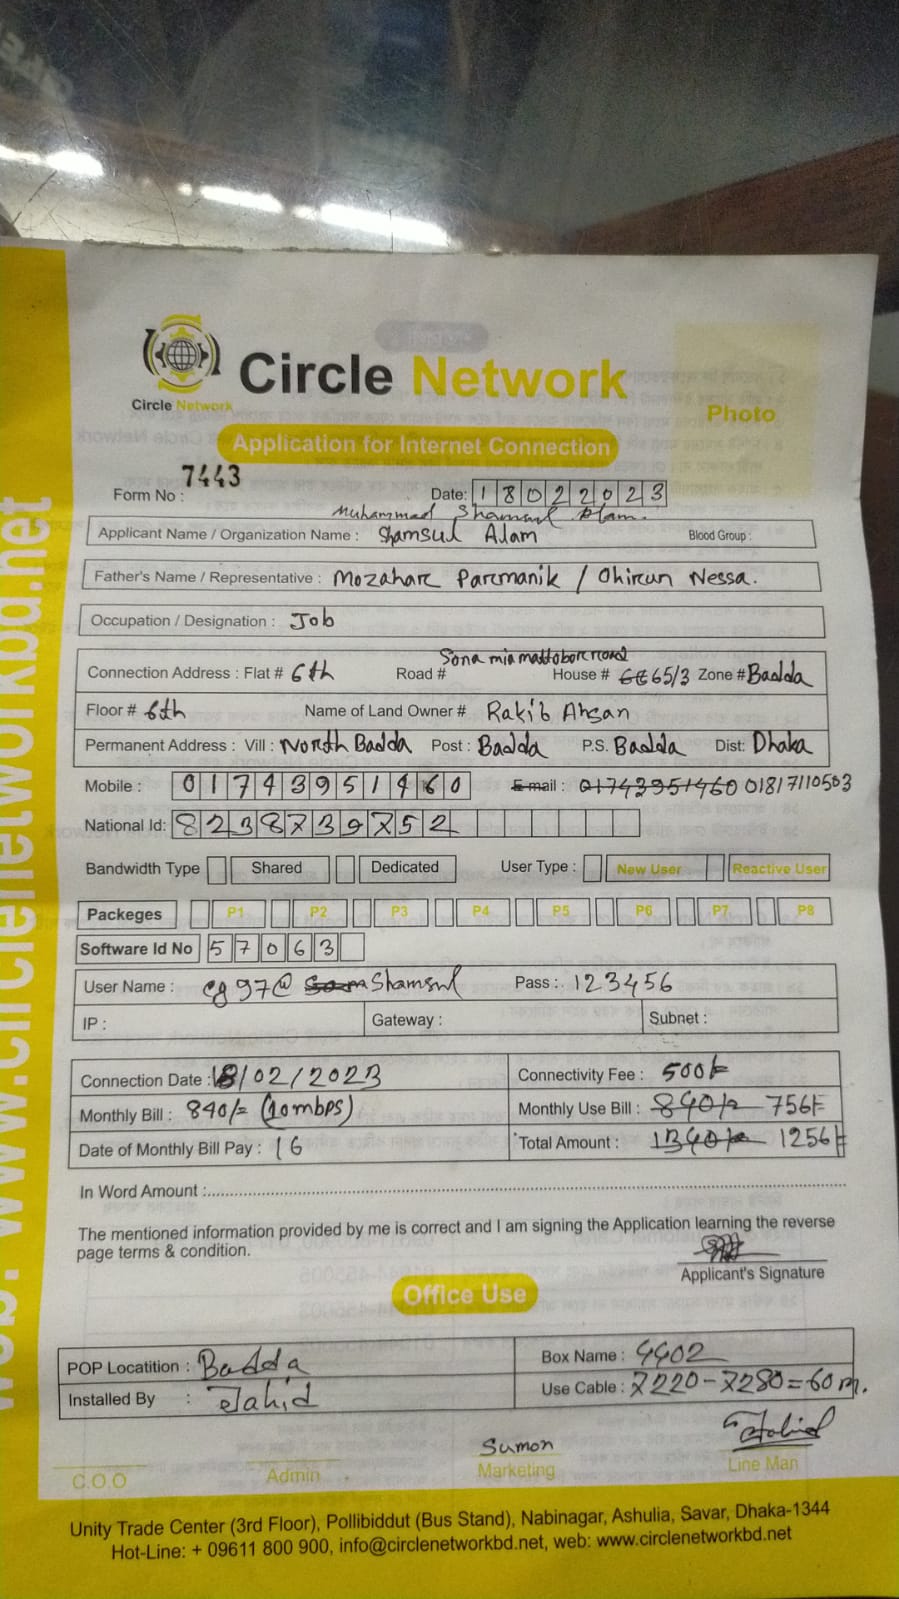 Circle Network
Circle Network
Photo
Application for Internet Connection
Form No : 7443 Date: 18022023
Muhammad Shamsul Alam.
Applicant Name / Organization Name : Shamsul Alam Blood Group :
Father's Name / Representative : Mozahar Parmanik / Ohirun Nessa.
Occupation / Designation : Job
Sona mia mattobor road
Connection Address : Flat # 6th Road # House # 65/3 Zone # Badda
Floor # 6th Name of Land Owner # Rakib Ahsan
Permanent Address : Vill : North Badda Post : Badda P.S. Badda Dist: Dhaka
Mobile : 01743951460 E-mail : 01743951460 01817110503
National Id: 8238739752
Bandwidth Type Shared Dedicated User Type : New User Reactive User
Packeges P1 P2 P3 P4 P5 P6 P7 P8
Software Id No 57063
User Name : cg97@ Shamsul Pass : 123456
IP : Gateway : Subnet :
Connection Date : 18/02/2023 Connectivity Fee : 500/-
Monthly Bill : 840/- (10mbps) Monthly Use Bill : 840/- 756/-
Date of Monthly Bill Pay : 16 Total Amount : 1340/- 1256/-
In Word Amount :
The mentioned information provided by me is correct and I am signing the Application learning the reverse
page terms & condition.
Applicant's Signature
Office Use
POP Locatition : Badda Box Name : 4402
Installed By : Jahid Use Cable : 7220-7280=60m.
Sumon Jahid
C.O.O Admin Marketing Line Man
Unity Trade Center (3rd Floor), Pollibiddut (Bus Stand), Nabinagar, Ashulia, Savar, Dhaka-1344
Hot-Line: + 09611 800 900, info@circlenetworkbd.net, web: www.circlenetworkbd.net
web: www.circlenetworkbd.net